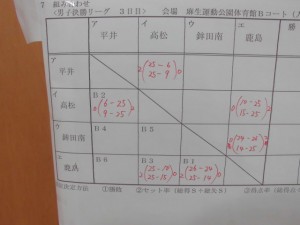 7 組み合わせ
<男子決勝リーグ 3日目> 会場 麻生運動公園体育館Bコート
ア イ ウ エ
平井 高松 鉾田南 鹿島 勝
ア
平井
2 (25-6 25-9) 0
イ
高松
B2
0 (6-25 9-25) 2
0 (19-25 15-25) 2
ウ
鉾田南
B4 B5
(24-26 14-25)
エ
鹿島
B6
B3
2 (25-19 25-15) 0
B1
2 (26-24 25-14) 0
①勝数 ②セット率